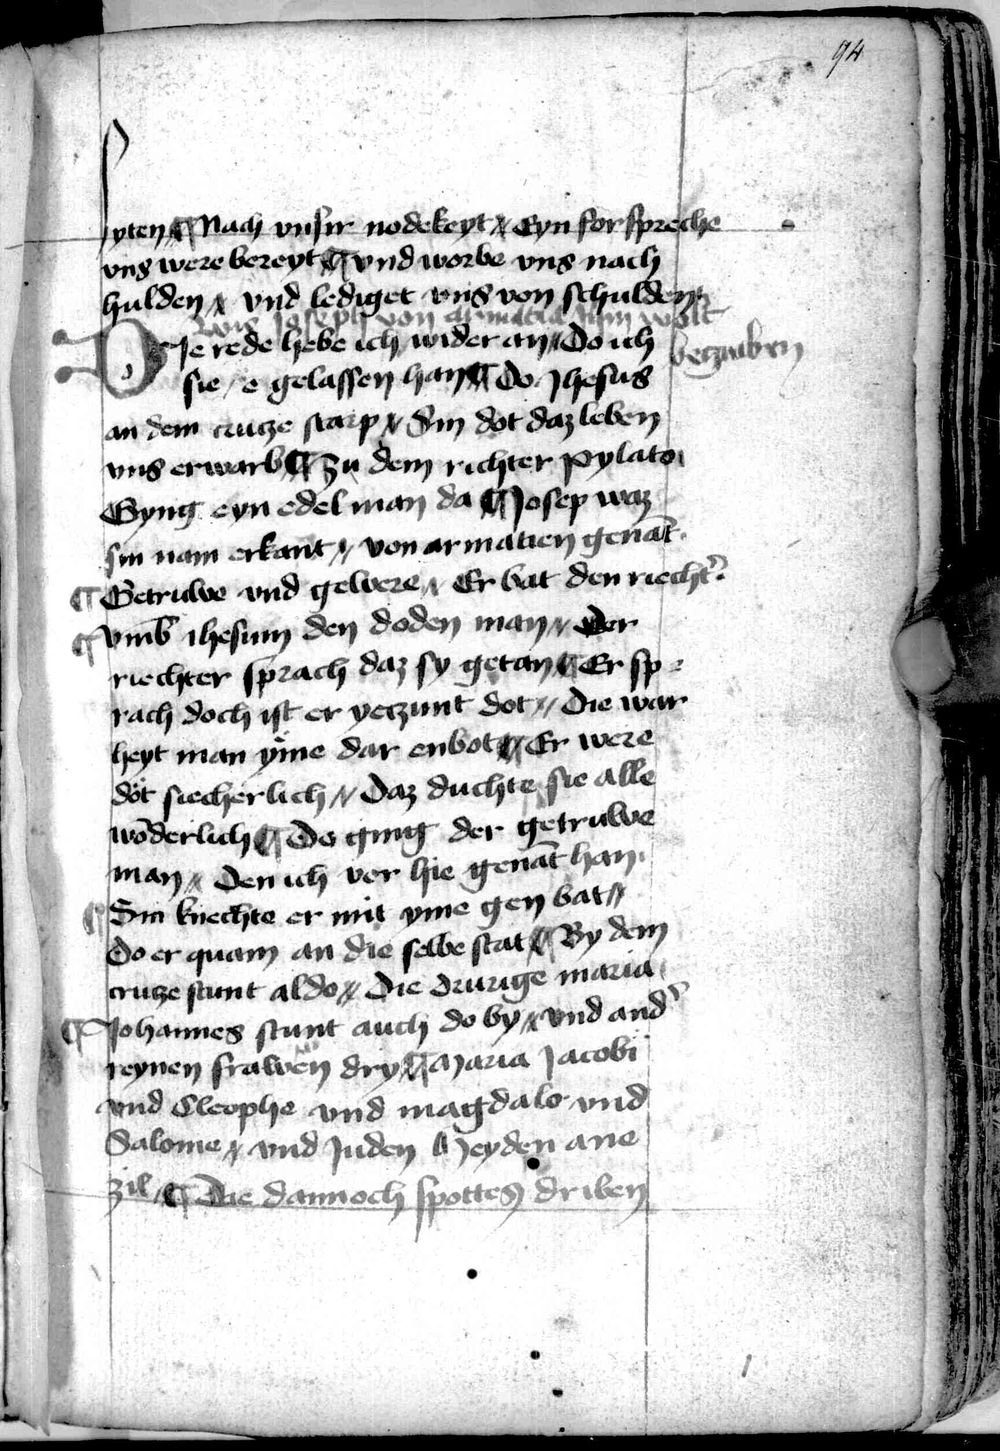 94
yten ¶ Nach vnsir nodekeyt // Eyn forspreche
vns were bereyt ¶ vnd worbe vns nach
hulden // vnd lediget vns von schulden
Joseph von armatia wolt
begraben
Die rede hebe ich wider an // Do ich
sie / e gelassen han ¶ Do Jhesus
an dem crutze starp // Sin dot daz leben
vns erwarb ¶ Zu dem richter pylato
Gyng eyn edel man da ¶ Josep waz
sin nam erkant // von armatien genāt
¶ Getruwe vnd gewere // Er bat den riecht᷑
¶ vmb ihesum den doden man // Der
riechter sprach daz sy getan ¶ Er sp
rach doch ist er yeczunt dot // Die war
heyt man yme dar enbot ¶ Er were
dot siecherlich // Daz duchte sie alle
wōderlich ¶ Do ging der getruwe
man // Den ich vor hie genāt han
¶ Sin knechte er mit yme gen bat //
Do er quam an die selbe stat ¶ By dem
crutze stunt aldo // Die drurige maria
¶ Johannes stunt auch do by // vnd and᷑
reynen frawen dry ¶ Maria Jacobi
vnd Cleophe vnd magdalo vnd
Salome // vnd Juden heyden ane
zil ¶ Die dannoch spottes driben